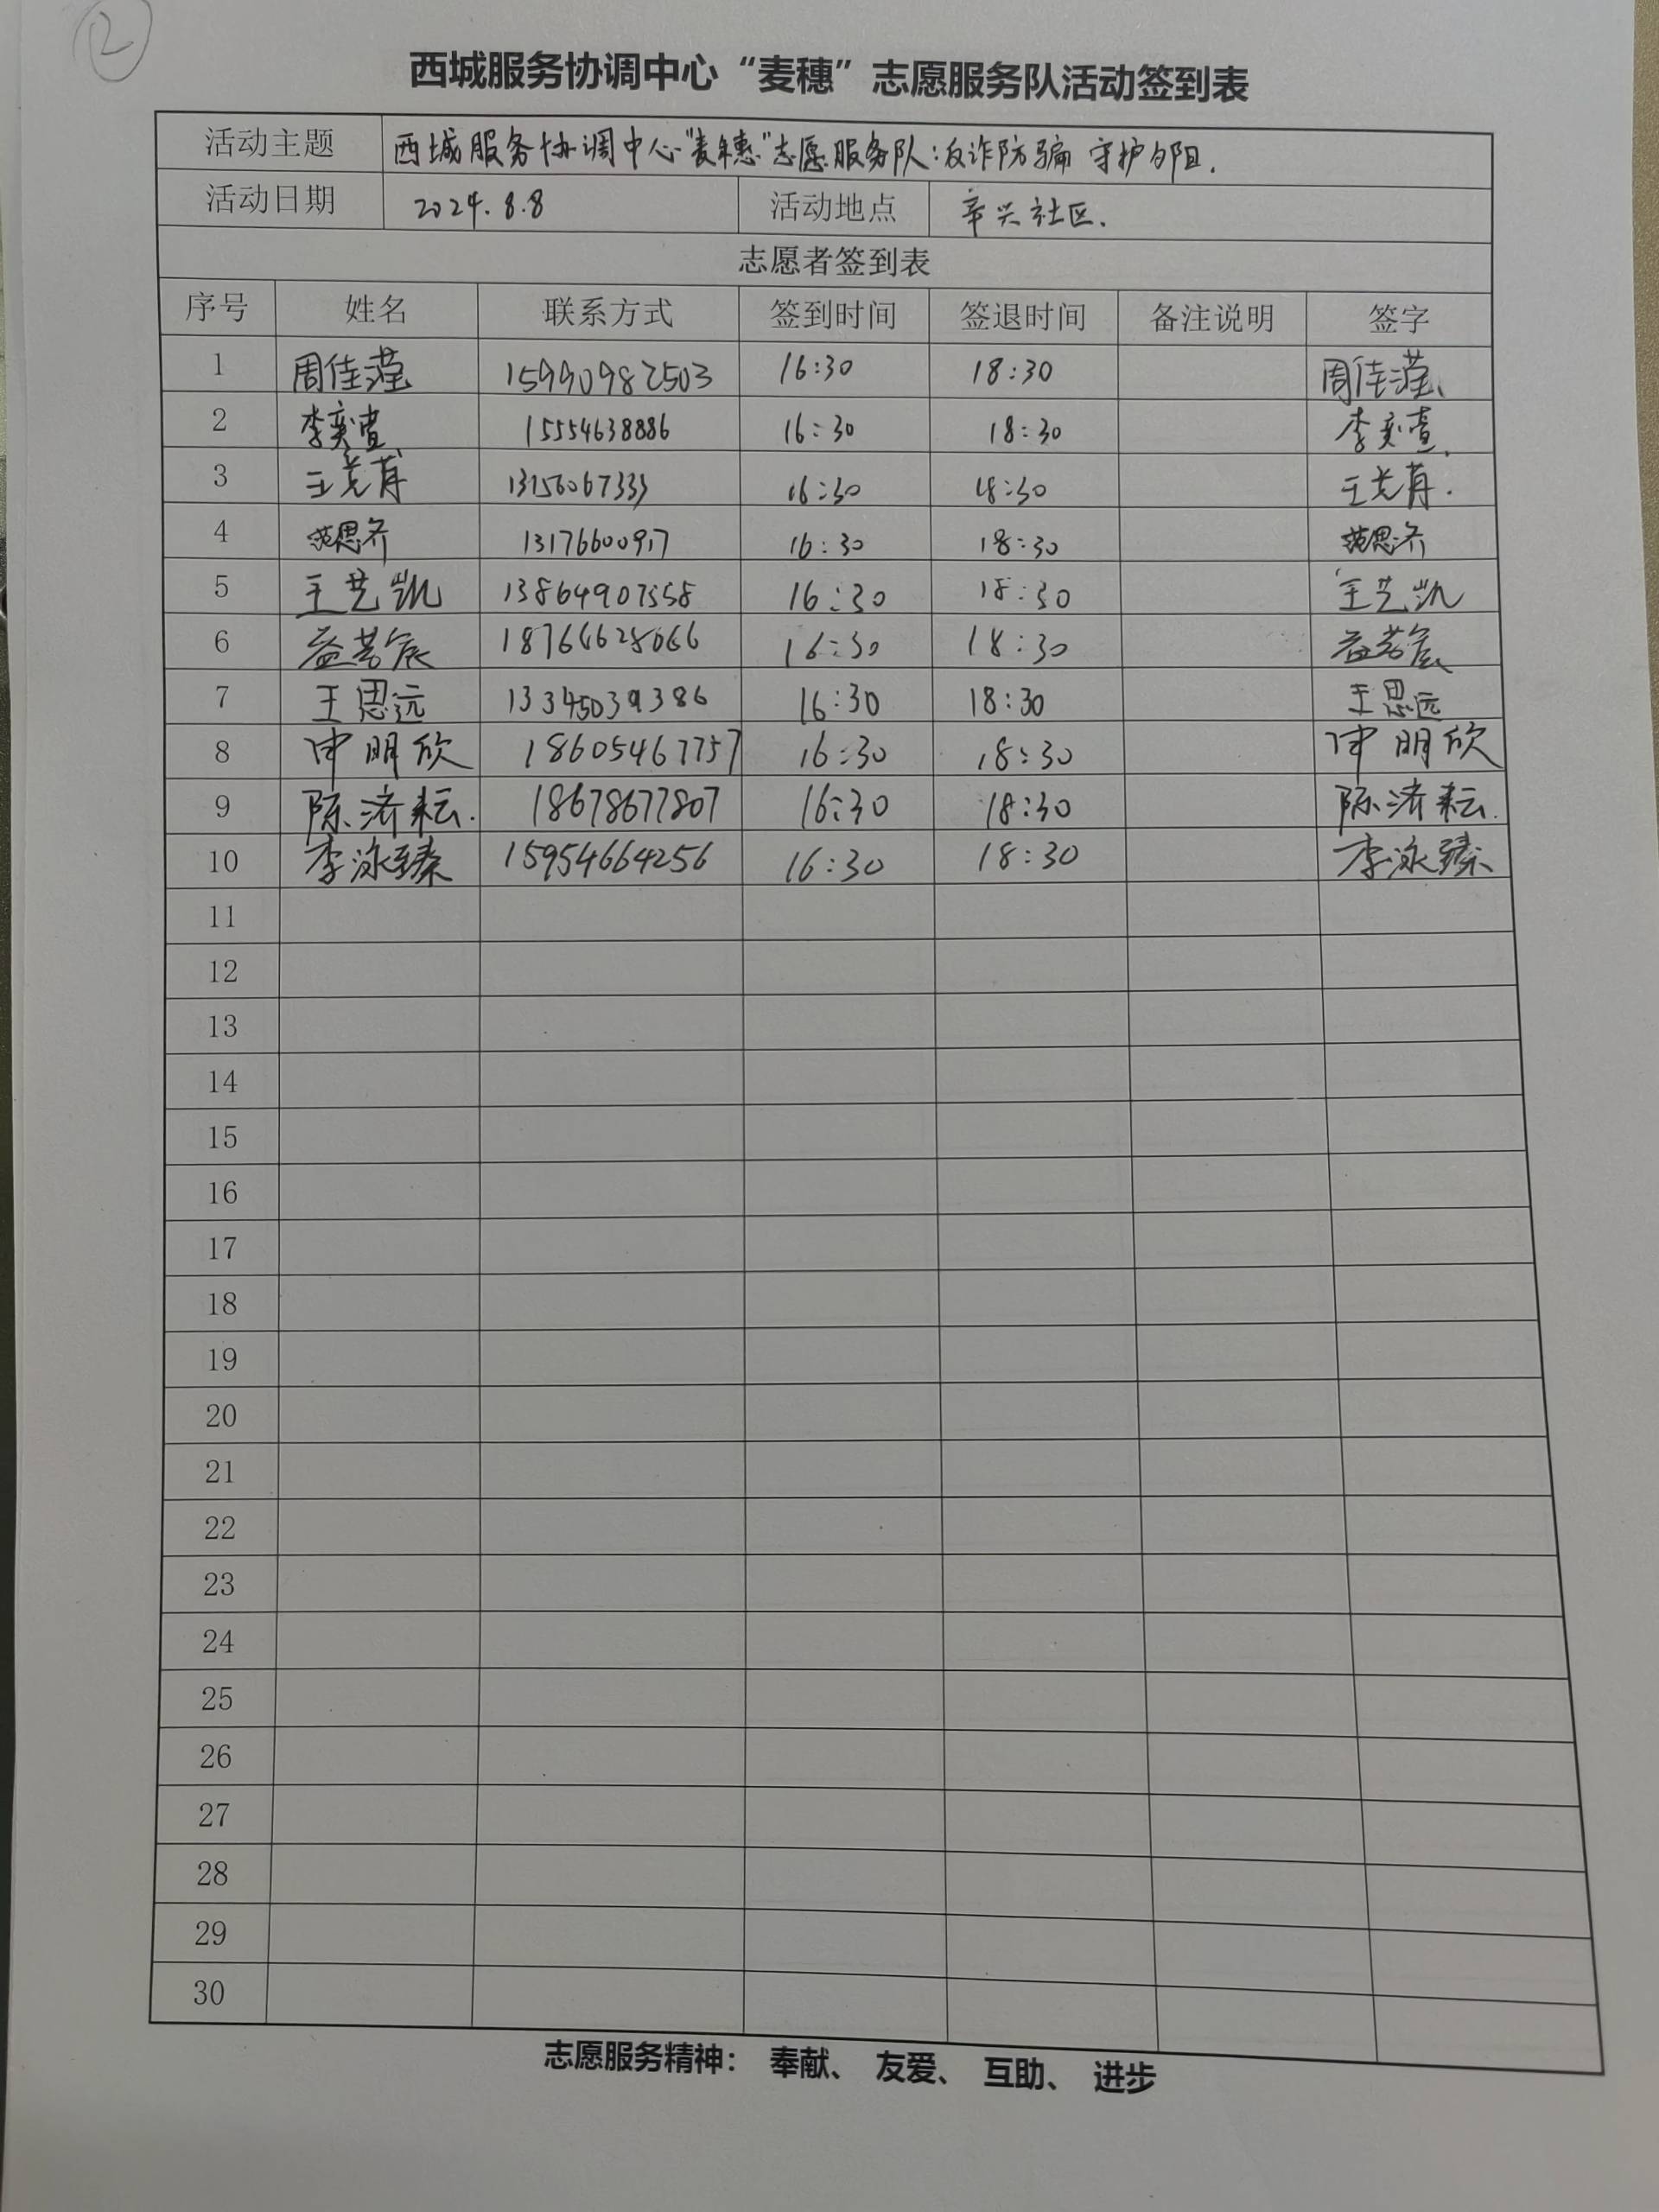 2
西城服务协调中心“麦穗”志愿服务队活动签到表
活动主题 西城服务协调中心“麦穗”志愿服务队:反诈防骗 守护夕阳.
活动日期 2024.8.8 活动地点 辛兴社区.
志愿者签到表
序号 姓名 联系方式 签到时间 签退时间 备注说明 签字
1 周佳滢 15990982503 16:30 18:30 周佳滢
2 李奕萱 15554638886 16:30 18:30 李奕萱
3 13156067333 16:30 18:30
4 范思齐 13176600917 16:30 18:30 范思齐
5 王艺凯 13864907558 16:30 18:30 王艺凯
6 盖若宸 18764628066 16:30 18:30 盖若宸
7 王思远 13345039386 16:30 18:30 王思远
8 申明欣 18605467757 16:30 18:30 申明欣
9 陈济耘. 18678677807 16:30 18:30 陈济耘.
10 李泳臻 15954664256 16:30 18:30 李泳臻
11
12
13
14
15
16
17
18
19
20
21
22
23
24
25
26
27
28
29
30
志愿服务精神： 奉献、 友爱、 互助、 进步